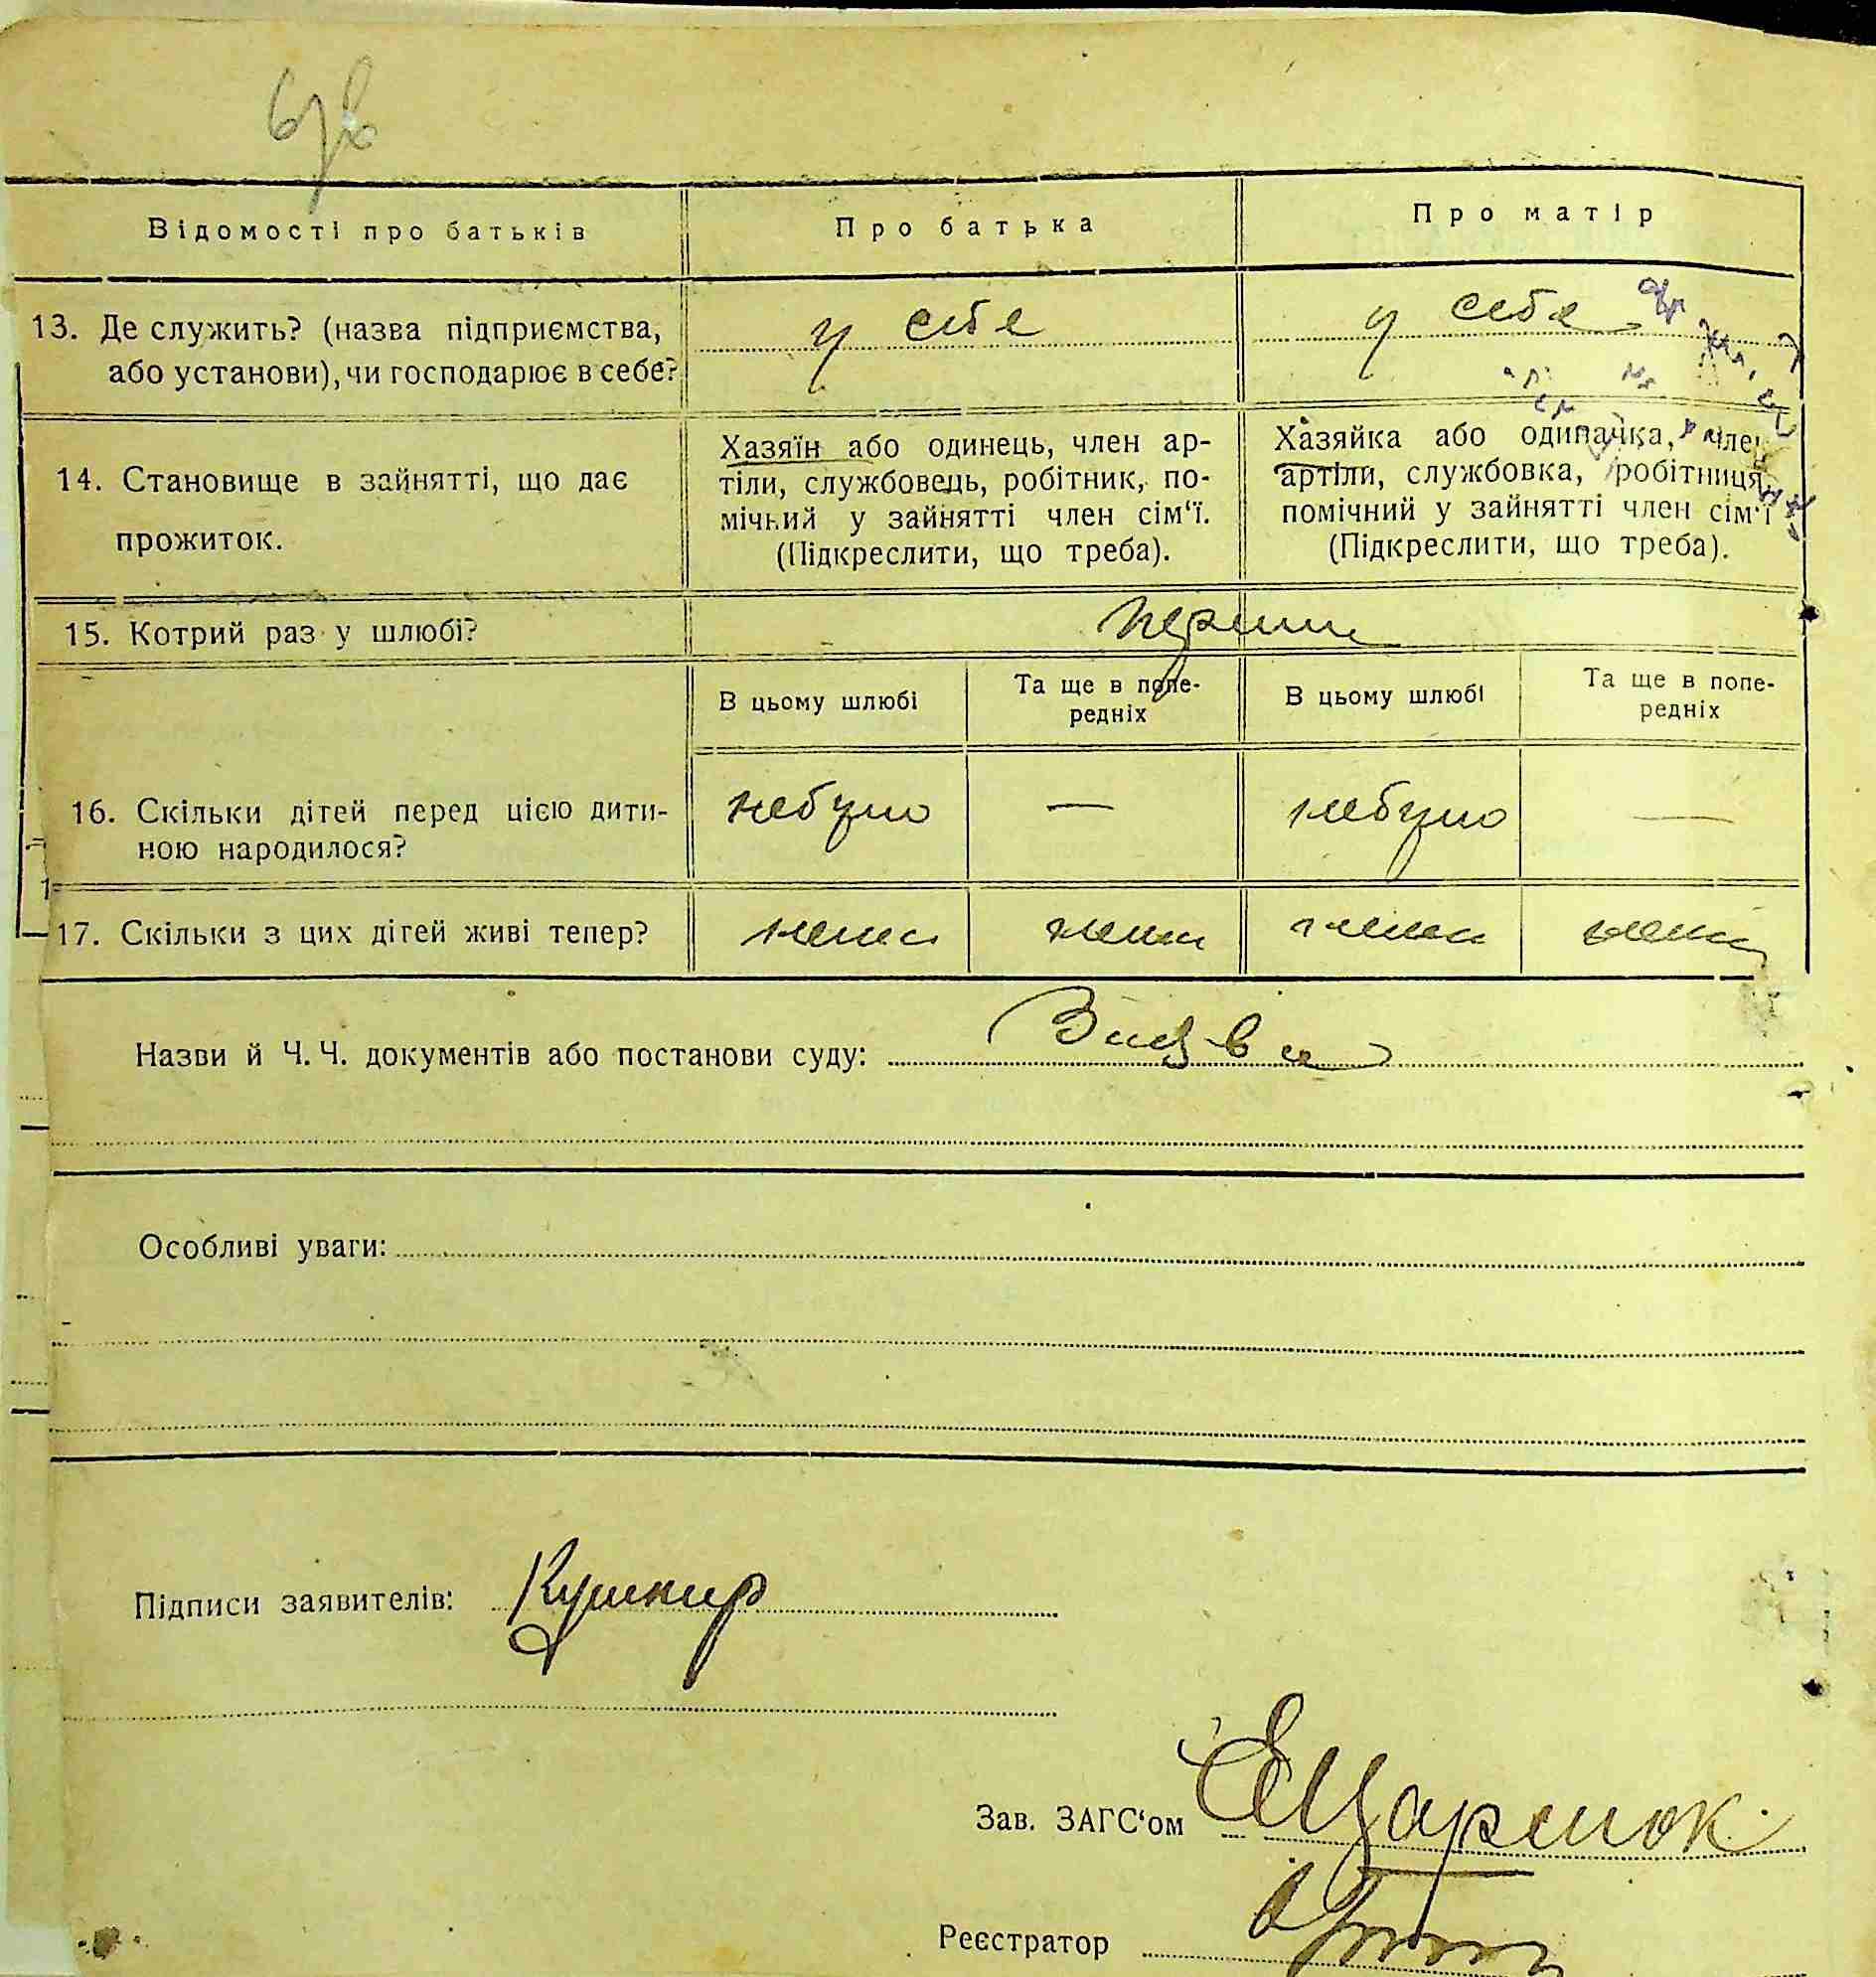 Відомості про батьків
Про батька
Про матір
13. Де служить? (назва підприємства,
або установи), чи господарює в себе?
у себе
у себе
14. Становище в зайнятті, що дає
прожиток.
Хазяїн або одинець, член ар-
тіли, службовець, робітник, по-
мічний у зайнятті член сім‘ї.
(Підкреслити, що треба).
Хазяйка або одиначка, член
артіли, службовка, робітниця,
помічний у зайнятті член сім‘ї
(Підкреслити, що треба).
15. Котрий раз у шлюбі?
перший
В цьому шлюбі
Та ще в попе-
редніх
В цьому шлюбі
Та ще в попе-
редніх
16. Скільки дітей перед цією дити-
ною народилося?
небуло
—
небуло
—
17. Скільки з цих дітей живі тепер?
нема
нема
нема
нема
Назви й Ч. Ч. документів або постанови суду:
Особливі уваги:
Підписи заявителів: Кушнир
Зав. ЗАГС‘ом
Реєстратор